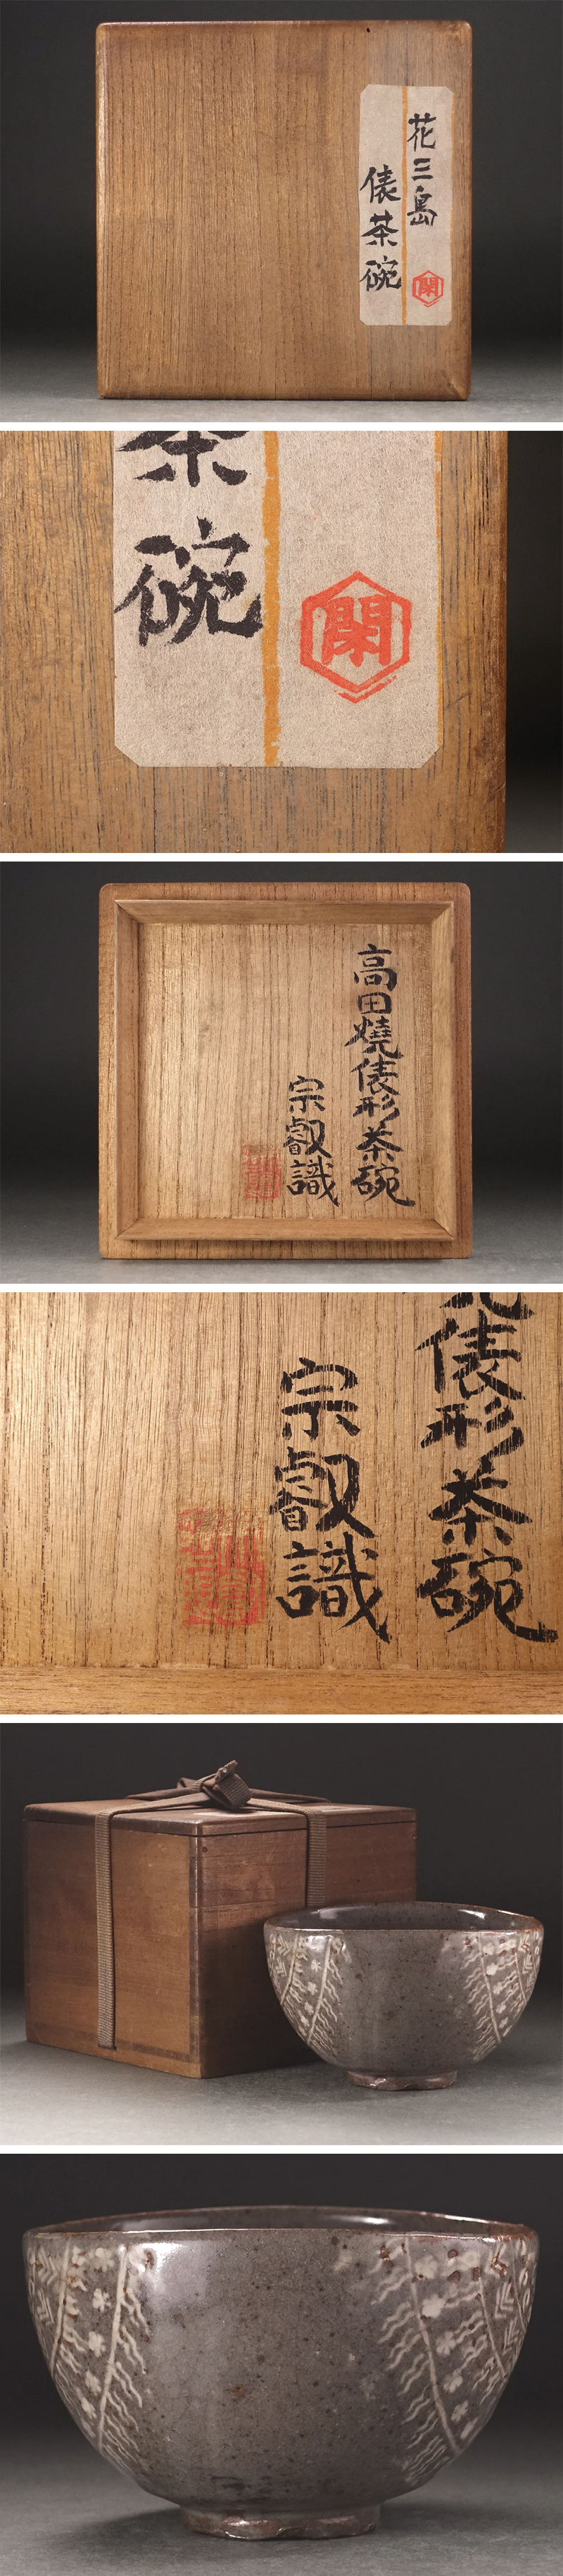 花三島
俵茶碗
閑
茶
碗
閑
高田焼俵形茶碗
宗叡識
俵形茶碗
宗叡識